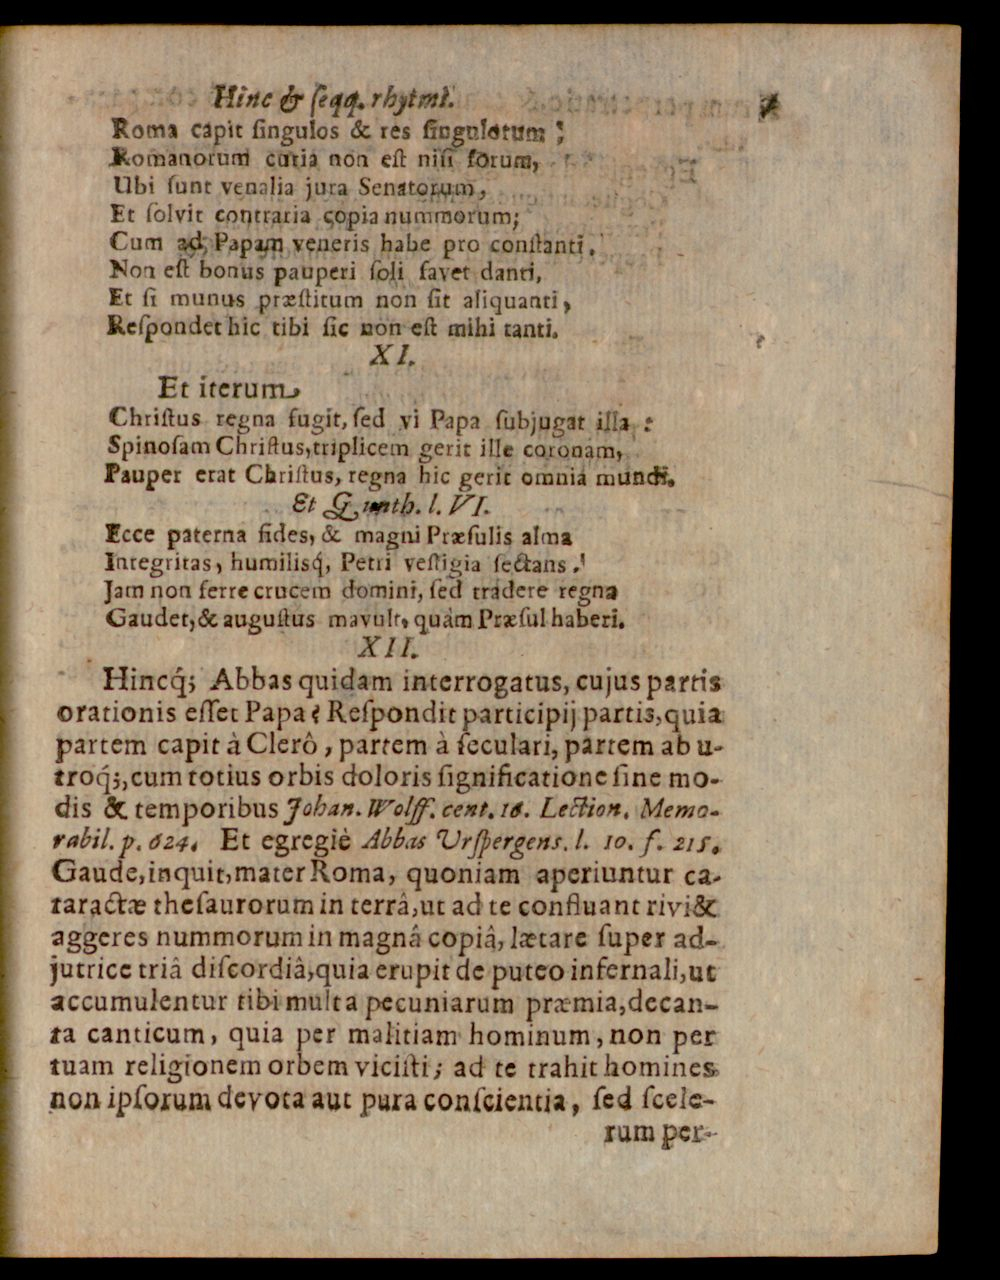 Hinc & ſeqq. rhytmi.
Roma capit ſingulos & res ſingulorum ;
Romanorum curia non eſt niſi forum,
Ubi ſunt venalia jura Senatorum,
Et ſolvit contraria copia nummorum;
Cum ad Papam veneris habe pro conſtanti.
Non eſt bonus pauperi ſoli favet danti,
Et ſi munus præſtitum non ſit aliquanti,
Reſpondet hic tibi ſic non eſt mihi tanti.
XI.
Et iterum
Chriſtus regna fugit, ſed vi Papa ſubjugat illa :
Spinoſam Chriſtus, triplicem gerit ille coronam,
Pauper erat Chriſtus, regna hic gerit omnia mundi.
Et Gunth. l. VI.
Ecce paterna fides, & magni Præſulis alma
Integritas, humilisq́, Petri veſtigia ſectans !
Jam non ferre crucem domini, ſed tradere regna
Gaudet, & auguſtus mavult, quàm Præſul haberi.
XII.
Hincq́; Abbas quidam interrogatus, cujus partis
orationis eſſet Papa? Reſpondit participij partis, quia
partem capit à Clerô, partem à ſeculari, partem ab u-
troq́;, cum totius orbis doloris ſignificatione ſine mo-
dis & temporibus Johan. Wolff. cent. 16. Lection. Memo-
rabil. p. 624. Et egregiè Abbas Urſpergens. l. 10. f. 215.
Gaude, inquit, mater Roma, quoniam aperiuntur ca-
taractæ theſaurorum in terrâ, ut ad te confluant rivi &
aggeres nummorum in magnâ copiâ, lætare ſuper ad-
jutrice triâ diſcordiâ, quia erupit de puteo infernali, ut
accumulentur tibi multa pecuniarum præmia, decan-
ta canticum, quia per malitiam hominum, non per
tuam religionem orbem viciſti; ad te trahit homines
non ipſorum devota aut pura conſcientia, ſed ſcele-
rum per-